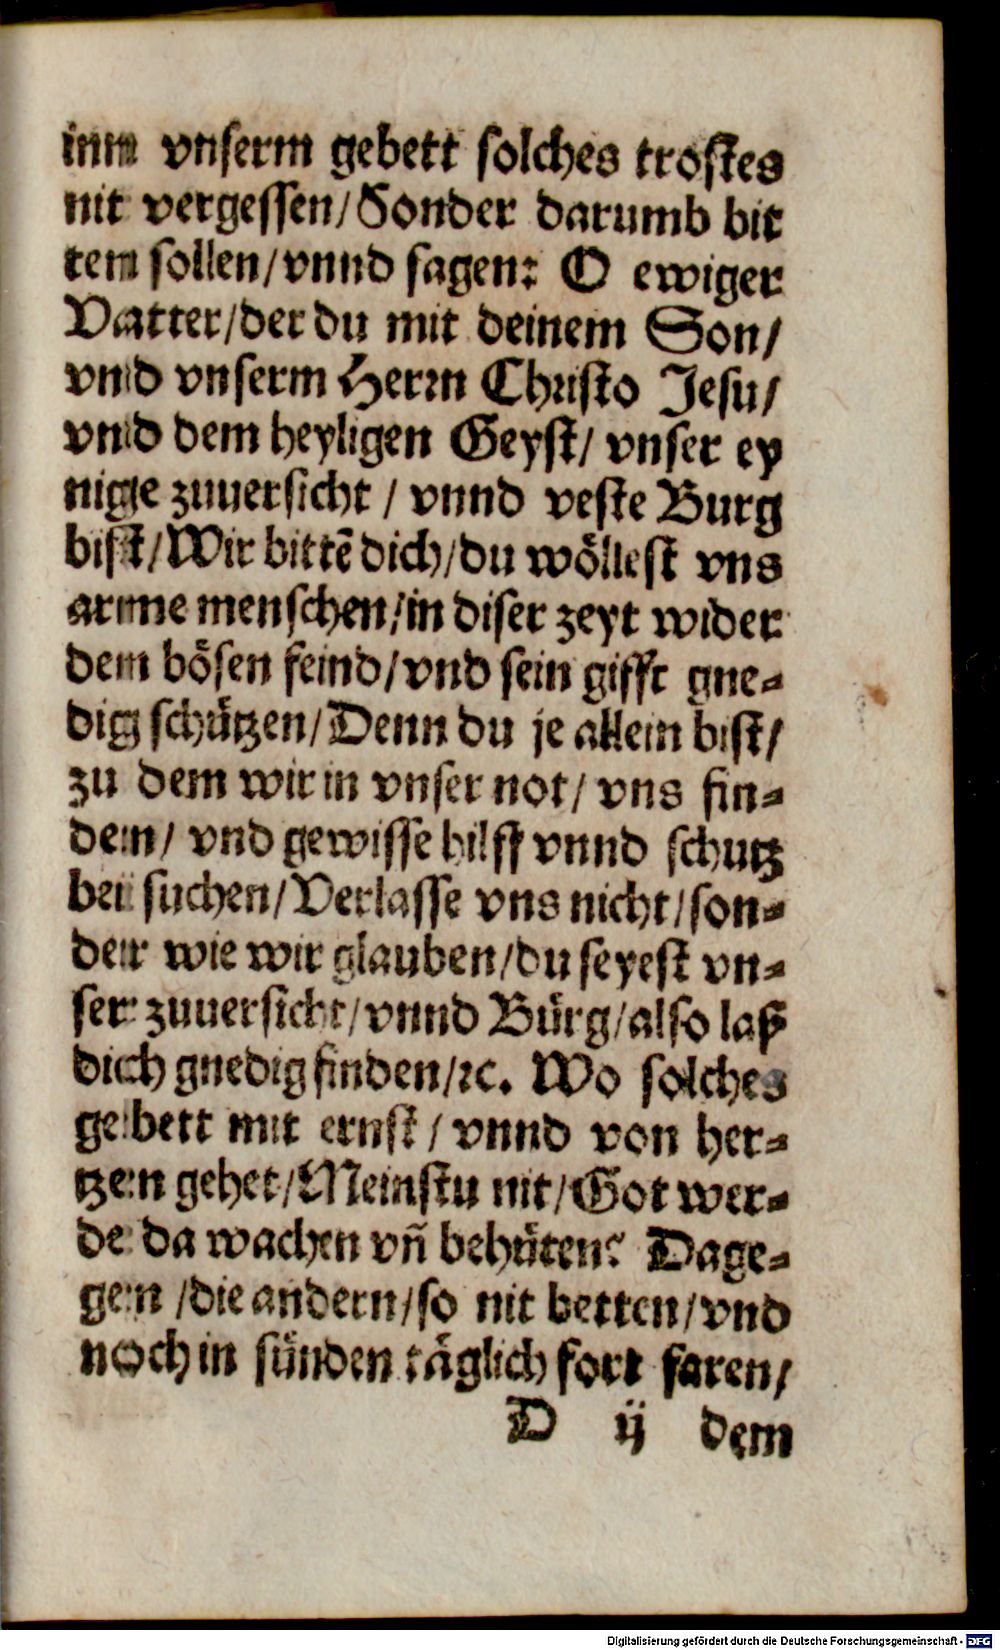 inn vnserm gebett solches trostes
nit vergessen/Sonder darumb bit
ten sollen/vnnd sagen: O ewiger
Vatter/der du mit deinem Son/
vnd vnserm Herrn Christo Jesu/
vnd dem heyligen Geyst/ vnser ey
nige zuuersicht / vnnd veste Burg
bist/Wir bittē dich/du wöllest vns
arme menschen/in diser zeyt wider
den bösen feind/vnd sein gifft gne-
dig schützen/Denn du je allein bist/
zu dem wir in vnser not/ vns fin-
den/ vnd gewisse hilff vnnd schutz
bei suchen/Verlasse vns nicht/son-
der wie wir glauben/du seyest vn-
ser zuuersicht/vnnd Bürg/also laß
dich gnedig finden/ꝛc. Wo solches
gebett mit ernst / vnnd von her-
tzen gehet/Meinstu nit/Got wer-
de da wachen vñ behüten? Dage-
gen /die andern/so nit betten/vnd
noch in sünden täglich fort faren/
D ij dem
Digitalisierung gefördert durch die Deutsche Forschungsgemeinschaft - DFG